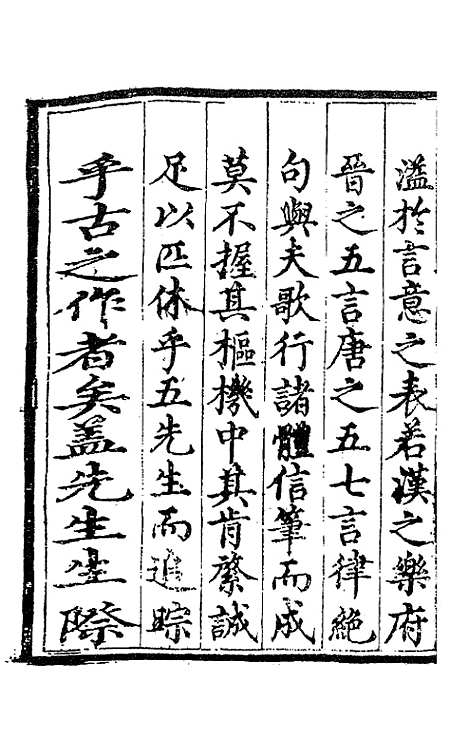 溢於言意之表若漢之樂府
晉之五言唐之五七言律絕
句與夫歌行諸體信筆而成
莫不握其樞機中其肯綮誠
足以匹休乎五先生而進踪
乎古之作者矣蓋先生生際